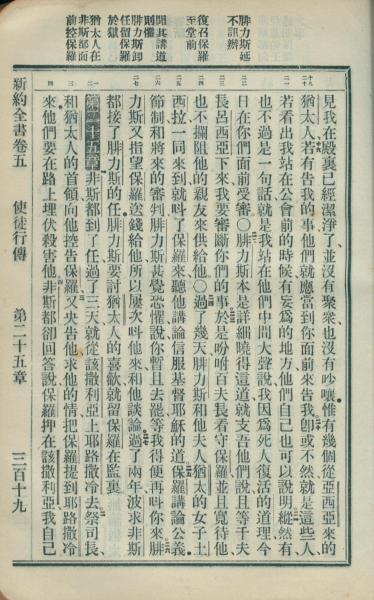 腓力斯延
不訊辦
復召保羅
至堂前
聞其講道
則懼
腓力斯卸
任留保羅
於獄
猶太人在
非斯都面
前控保羅
見我在殿裏已經潔淨了並沒有聚衆也沒有吵嚷惟有幾個從亞西亞來的
猶太人若有告我的事他們就應當到你面前來告我卽或不然就是這些人
若看出我站在公會前的時候有妄爲的地方他們自己也可以說明縱然有
也不過是一句話就是我站在他們中間大聲說我因爲死人復活的道理今
日在你們面前受審○腓力斯本是詳細曉得這道就支吾他們說且等千夫
長呂西亞下來我要審斷你們的事於是吩咐百夫長看守保羅並且寬待他
也不攔阻他的親友來供給他○過了幾天腓力斯和他夫人猶太的女子土
西拉一同來到就呌了保羅來聽他講論信服基督耶穌的道保羅講論公義
節制和將來的審判腓力斯甚覺恐懼說你暫且去罷等我得便再呌你來腓
力斯又指望保羅送錢給他所以屢次呌他來和他談論過了兩年波求非斯
都接了腓力斯的任腓力斯要討猶太人的喜歡就留保羅在監裏
第二十五章非斯都到了任過了三天就從該撒利亞上耶路撒冷去祭司長
和猶太人的首領向他控告保羅又央告他求他的情把保羅提到耶路撒冷
來他們要在路上埋伏殺害他非斯都卻回答說保羅押在該撒利亞我自己
新約全書卷五 使徒行傳 第二十五章 三百十九